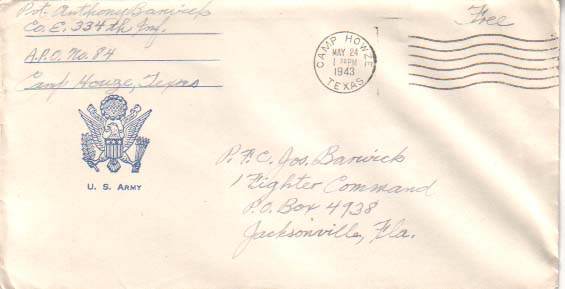 Pvt. Anthony Barwick
Co. E. 334th Inf.
A.P.O. No. 84
Camp Howze, Texas
Free
CAMP HOWZE
MAY 24
1 PM
1943
TEXAS
U. S. ARMY
P.F.C. Jos. Barwick
1 Fighter Command
P.O. Box 4938
Jacksonville, Fla.